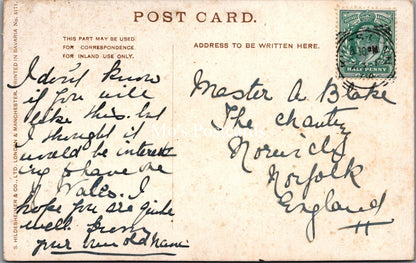 POST CARD.
THIS PART MAY BE USED
FOR CORRESPONDENCE
FOR INLAND USE ONLY.
ADDRESS TO BE WRITTEN HERE.
HALF PENNY
S. HILDESHEIMER & CO., LTD. LONDON & MANCHESTER. PRINTED IN BAVARIA No.
I don't know
if you will
like this. but
I thought it
would be interest
ing to have one
of Wales. I
hope you are quite
well. from
your own old
Master A. Blake
The Chantry
Norwich
Norfolk
England
Mo's Postcards